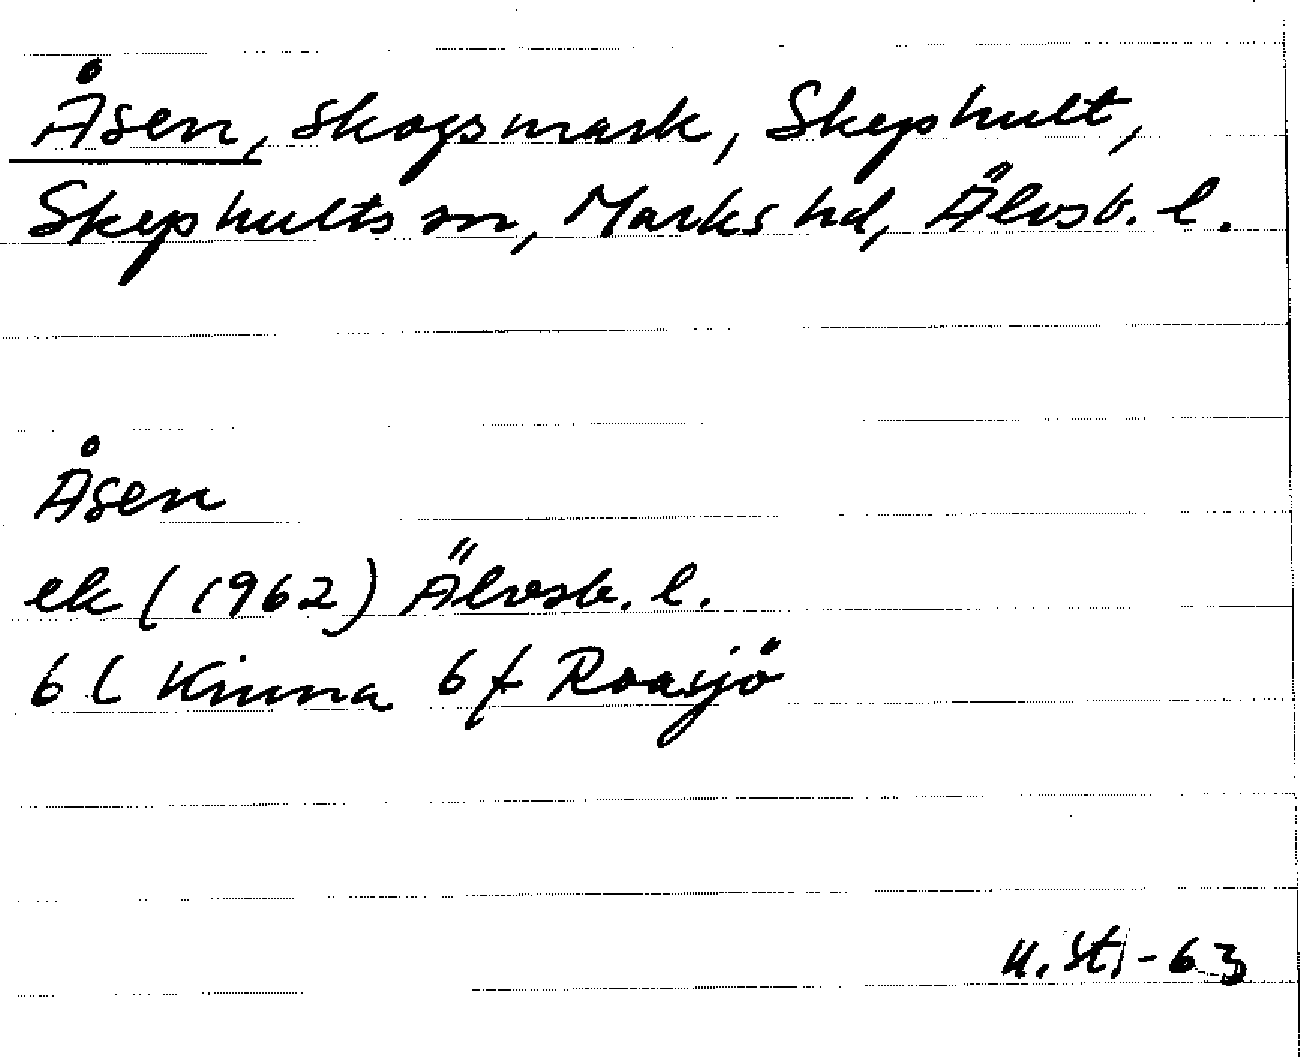 Åsen, skogsmark, Skephult,
Skephults sn, Marks hd, Älvsb. l.
Åsen
ek (1962) Älvsb. l.
6 C Kinna 6 f Roasjö
-63